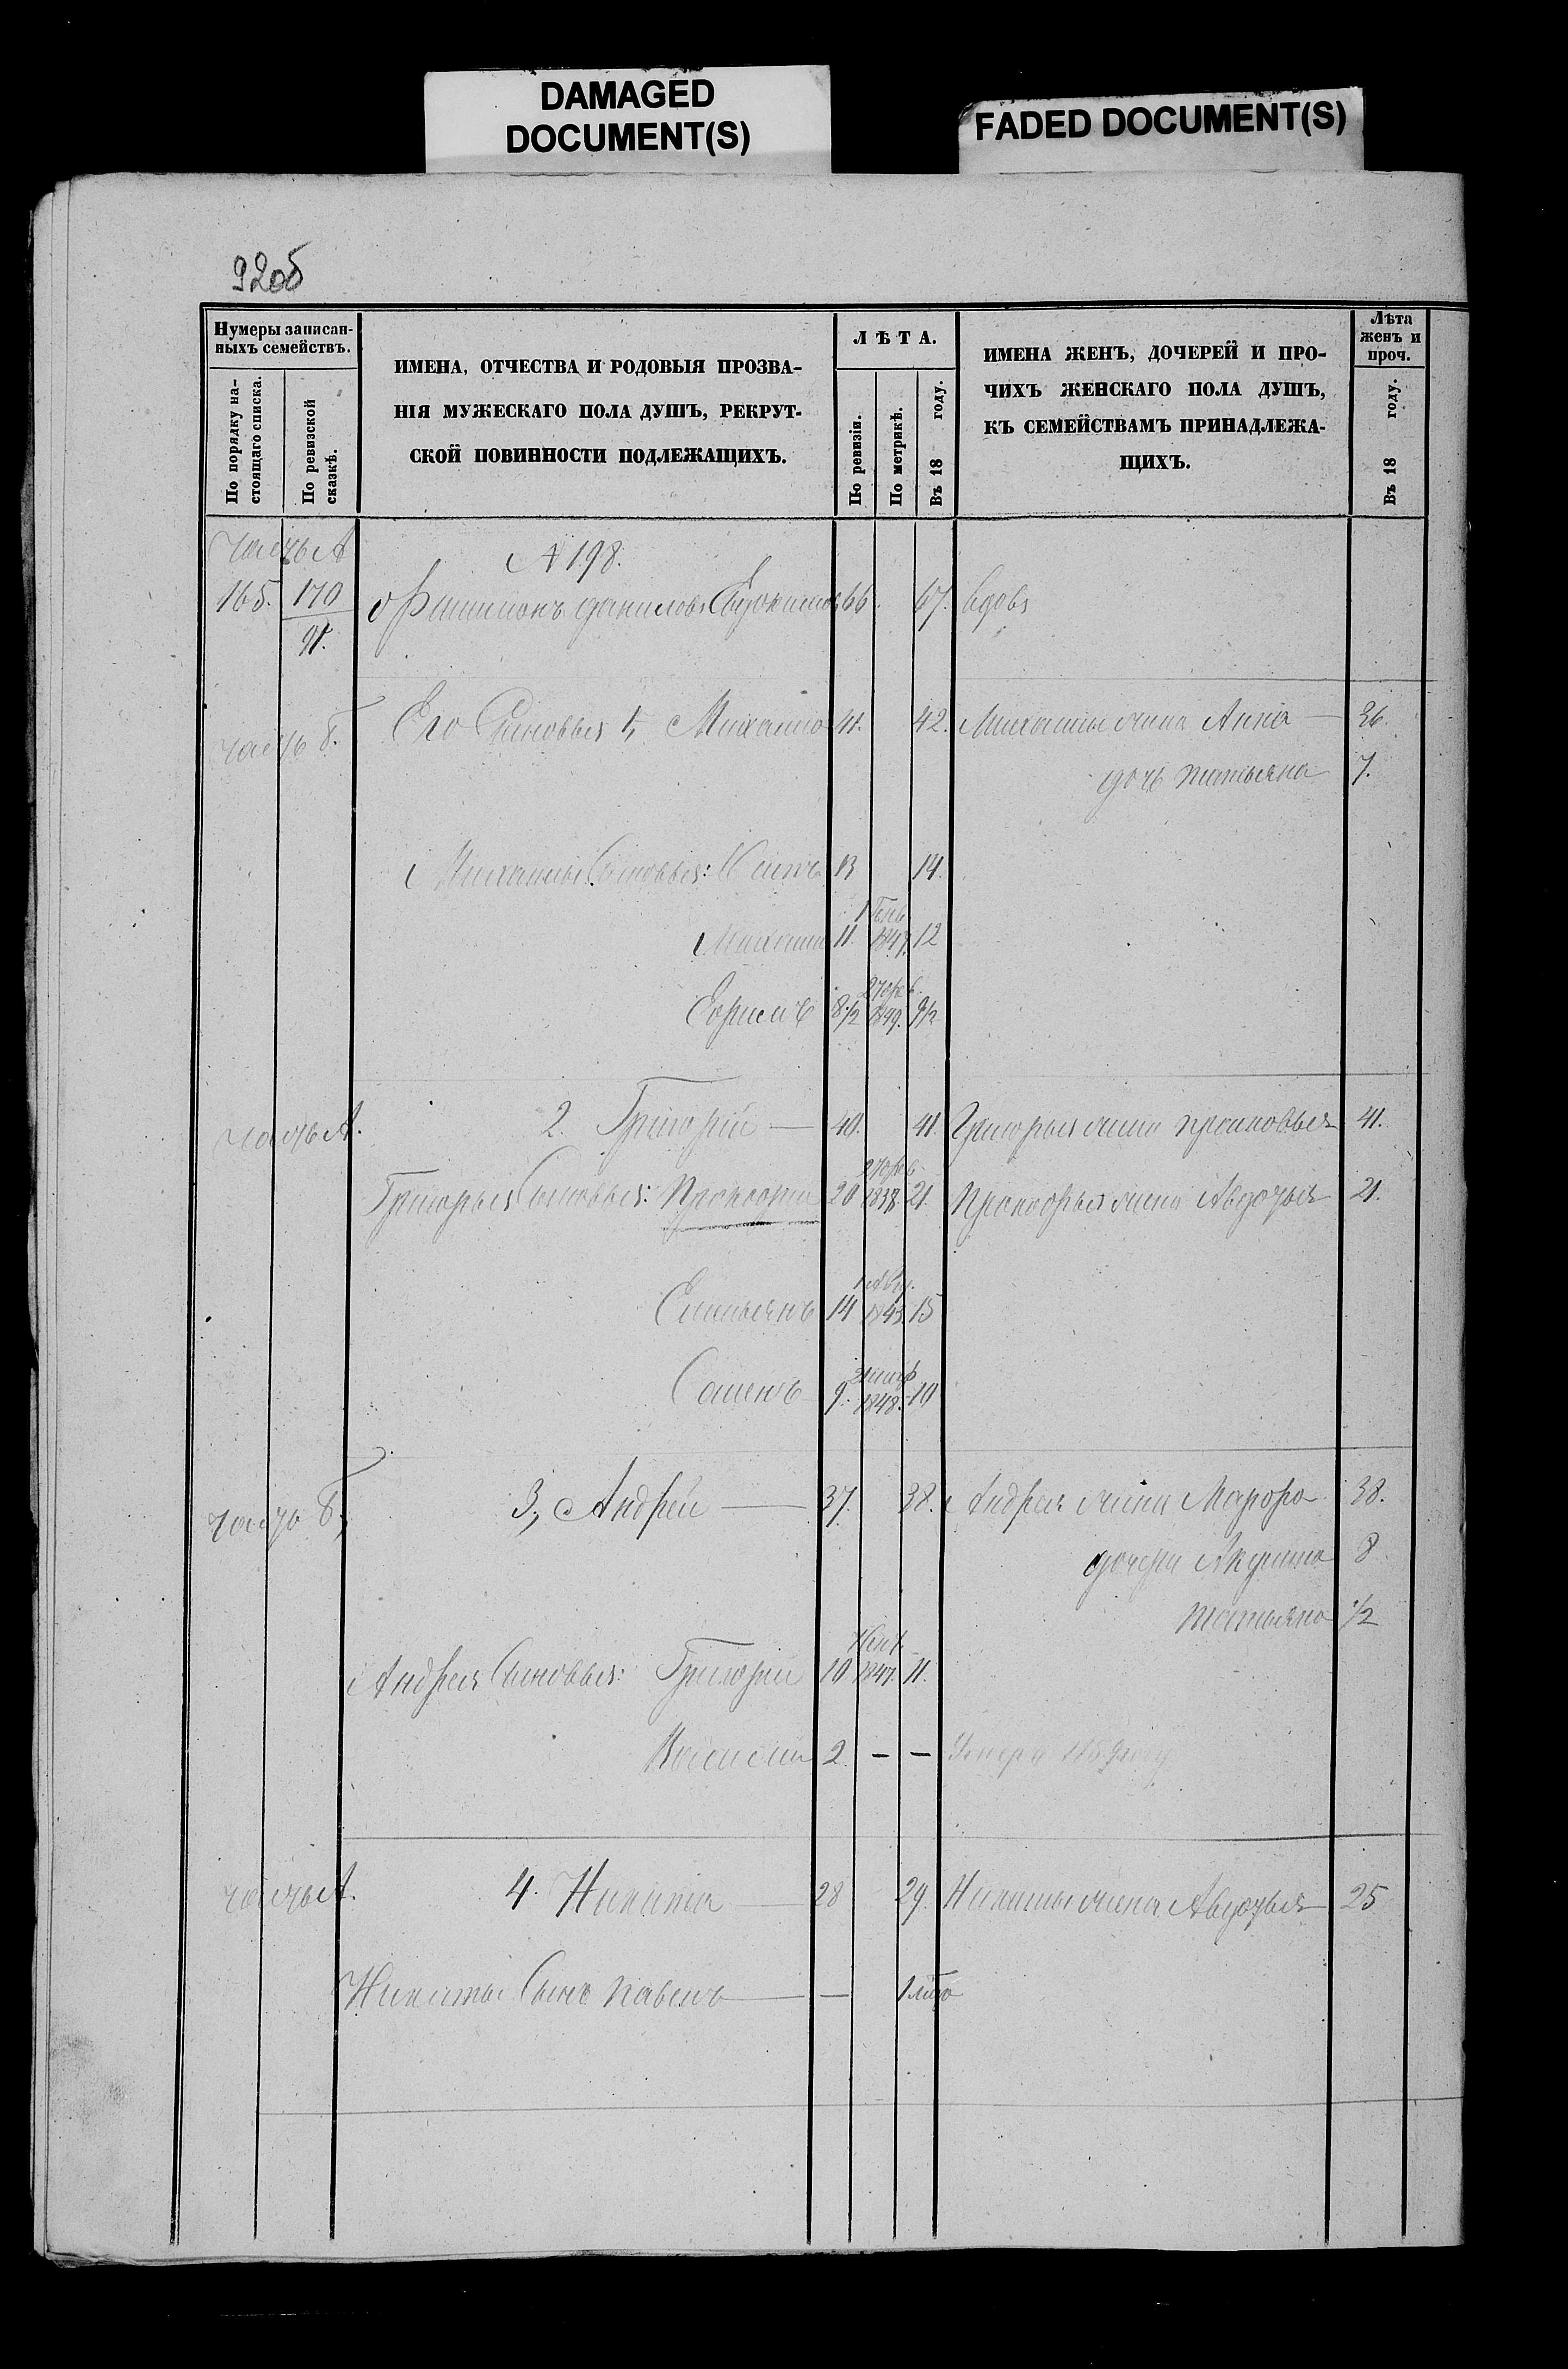 DAMAGED
DOCUMENT(S)
FADED DOCUMENT(S)
92об
Нумеры записан-
ныхъ семействъ.
По порядку на-
стоящаго списка.
По ревизской
сказкѣ.
ИМЕНА, ОТЧЕСТВА И РОДОВЫЯ ПРОЗВА-
НІЯ МУЖЕСКАГО ПОЛА ДУШЪ, РЕКРУТ-
СКОЙ ПОВИННОСТИ ПОДЛЕЖАЩИХЪ.
ЛѢТА.
По ревизіи.
По метрикѣ.
Въ 18 году.
ИМЕНА ЖЕНЪ, ДОЧЕРЕЙ И ПРО-
ЧИХЪ ЖЕНСКАГО ПОЛА ДУШЪ,
КЪ СЕМЕЙСТВАМЪ ПРИНАДЛЕЖА-
ЩИХЪ.
Лѣта
женъ и
проч.
Въ 18 году.
часть А
№ 198.
165. 170 Филимонъ Даниловъ Евдокимовъ 66. 67. вдовъ
91.
часть Б. Его Сыновья 1, Михаило 41. 42. Михаилы жена Анна — 36.
дочь Татьяна 7.
Михаилы Сыновья: 13 14.
1 Генв
Михаилъ 11. 1847. 12
Ефимъ 8 1/2 1849. 9 1/2
часть А. 2. Григорій — 40. 41. Григорья жена Прасковья 41.
Григорья Сыновья: Прокофій 20 1838. 21. Прокофья жена Авдотья 21.
Емельянъ 14 1843 15
Семенъ 9. 1848. 10
часть Б, 3, Андрей — 37. 38. Андрея жена Марфа 38.
дочери Акулина 8
Татьяна 1/2
Андрея Сыновья: Григорій 10 1847. 11.
Василій 2 — — Умеръ 1859 году
часть А. 4. Никита — 28 29. Никиты жена Авдотья — 25
Никиты Сынъ Павелъ — — 1 лѣто